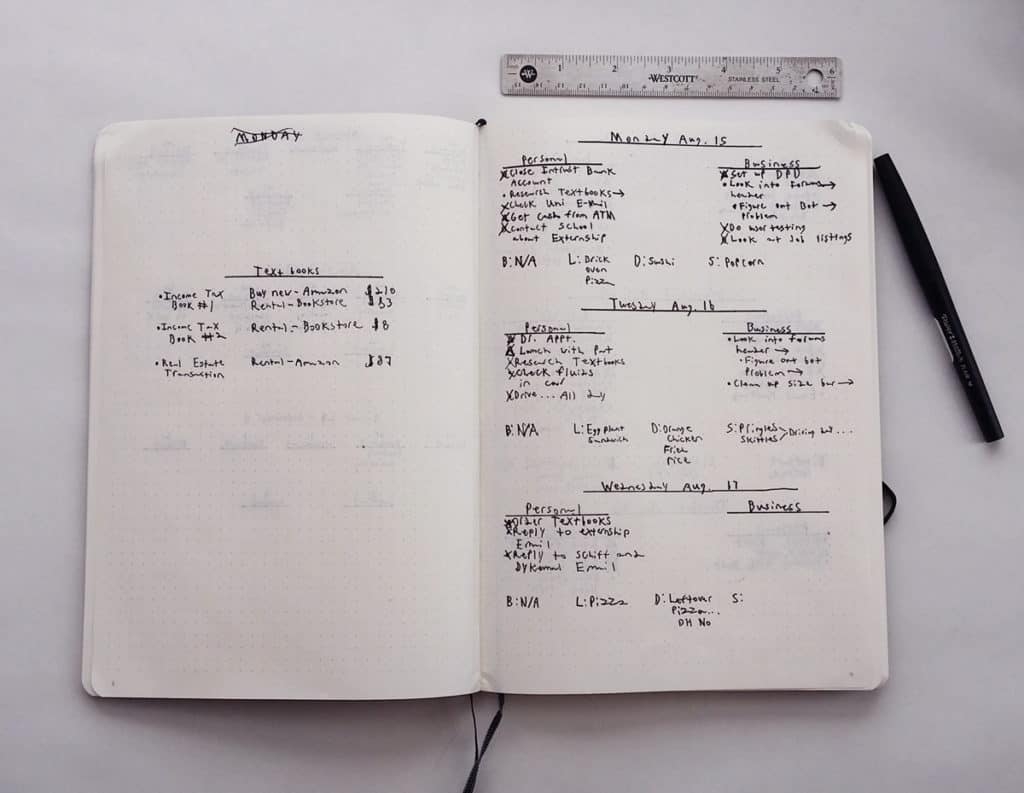 1 2 3 4 5 6
W WESTCOTT STAINLESS STEEL
MONDAY
Text books
• Income Tax Buy new - Amazon $210
Book #1 Rental - Bookstore $
• Income Tax Rental - Bookstore $8
Book #2
• Real Estate Rental - Amazon $87
Transaction
Monday Aug. 15
Personal
X Close Intrust Bank
Account
• Research Textbooks →
X Check Uni E-Mail
X Get Cash from ATM
X Contact School
about Externship
Business
X Set up DPD
• Look into forums →
header
• Figure out Bot →
problem
X Do user testing
X Look at Job listings
B: N/A L: Brick D: Sushi S: Popcorn
oven
Pizza
Tuesday Aug. 16
Personal
X Dr. Appt.
X Lunch with Pat
X Research Textbooks
X Check fluids
in car
X Drive... All day
Business
• Look into forums
header →
• Figure out bot
problem →
• Clean up size bar →
B: N/A L: Eggplant D: Orange S: Pringles > Driving but...
Sandwich Chicken Skittles
Fried
rice
Wednesday Aug. 17
Personal
X Order Textbooks
X Reply to externship
Email
X Reply to Schiff and
Email
Business
B: N/A L: Pizza D: Leftover S:
Pizza...
OH No